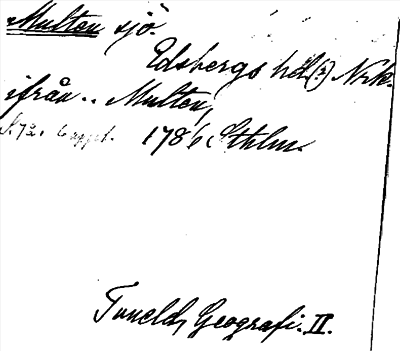 Multen sjö.
Edsbergs hd(?) Nrk.
ifrån .. Multen,
S. 72. 6 uppl. 1786 Sthlm.
Tuneld, Geografi. II.